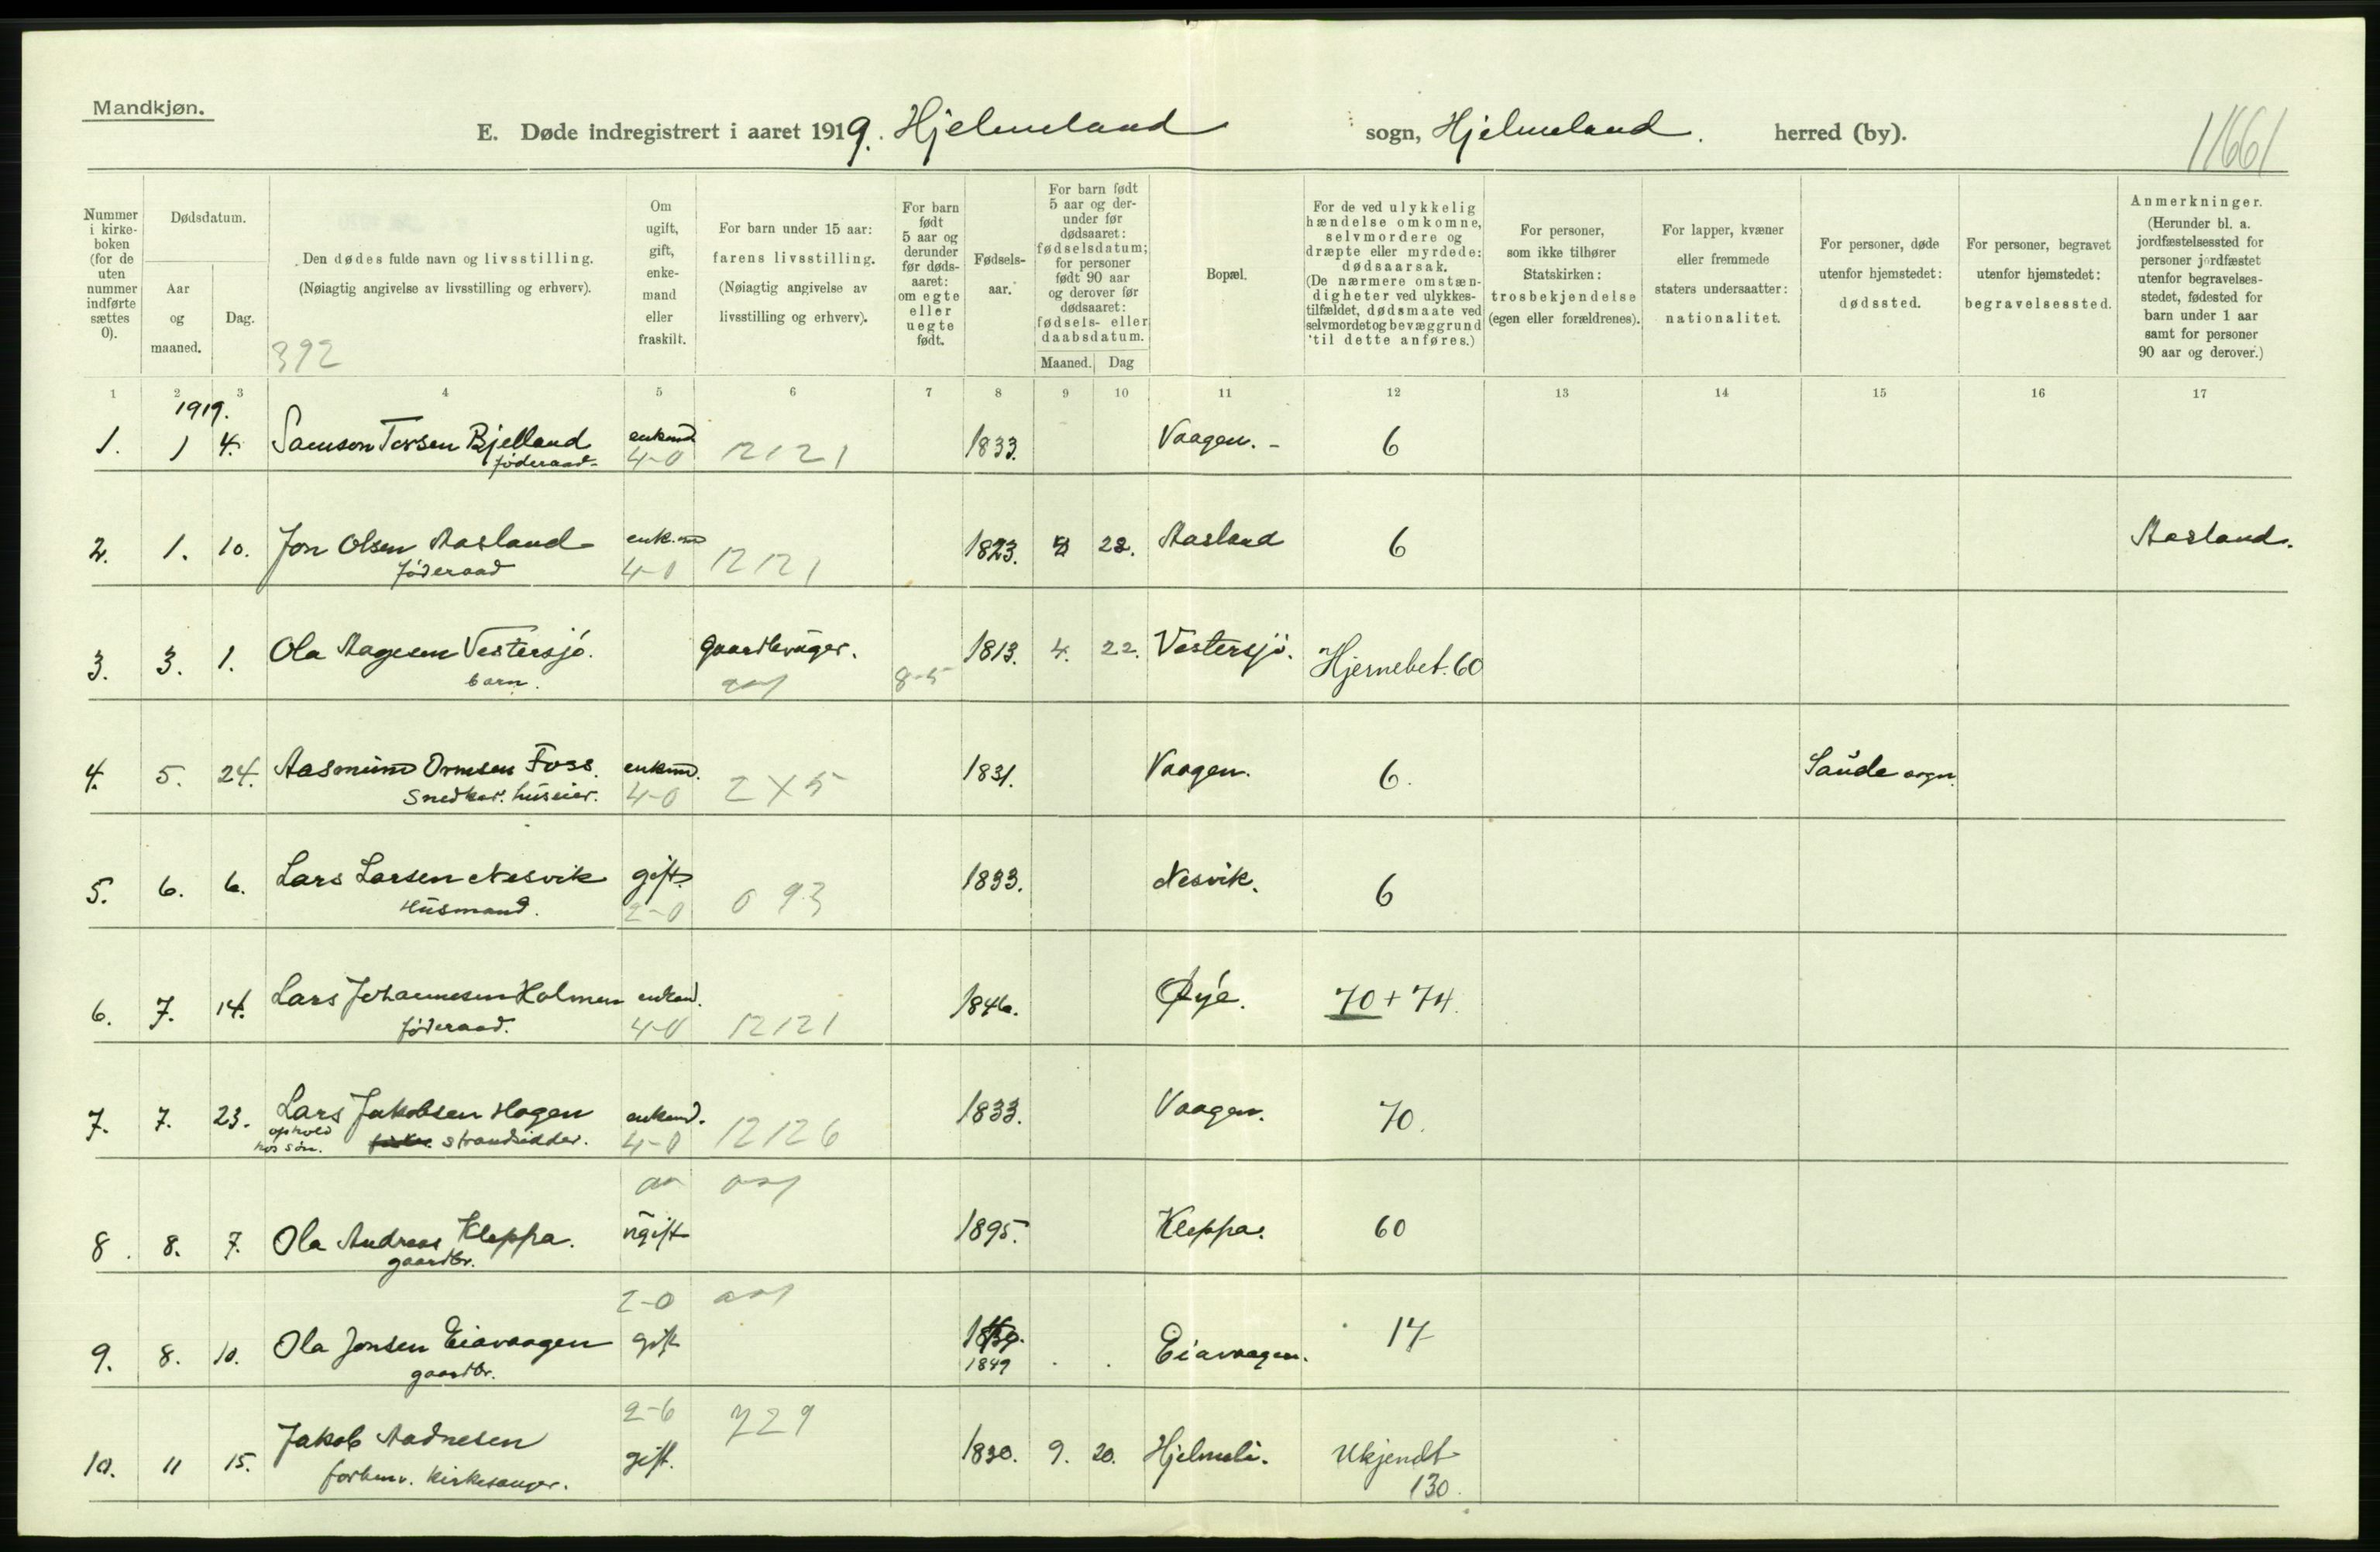 Mandkjøn.
E. Døde indregistrert i aaret 1919. Hjelmeland sogn, Hjelmeland. herred (by).
11661
Nummer i kirke- boken (for de uten nummer indførte sættes 0).
Dødsdatum.
Aar og maaned.
Dag.
Den dødes fulde navn og livsstilling.
(Nøiagtig angivelse av livsstilling og erhverv).
392
Om ugift, gift, enke- mand eller fraskilt.
For barn under 15 aar: farens livsstilling.
(Nøiagtig angivelse av livsstilling og erhverv).
For barn født 5 aar og derunder før døds- aaret: om egte eller uegte født.
Fødsels- aar.
For barn født 5 aar og der- under før dødsaaret: fødselsdatum; for personer født 90 aar og derover før dødsaaret: fødsels- eller daabsdatum.
Maaned. Dag
Bopæl.
For de ved ulykkelig hændelse omkomne, selvmordere og dræpte eller myrdede: dødsaarsak.
(De nærmere omstæn- digheter ved ulykkes- tilfældet, dødsmaate ved selvmordet og bevæggrund til dette anføres.)
For personer, som ikke tilhører Statskirken: trosbekjendelse (egen eller forældrenes).
For lapper, kvæner eller fremmede staters undersaatter: nationalitet.
For personer, døde utenfor hjemstedet: dødssted.
For personer, begravet utenfor hjemstedet: begravelsessted.
Anmerkninger.
(Herunder bl. a. jordfæstelsessted for personer jordfæstet utenfor begravelses- stedet, fødested for barn under 1 aar samt for personer 90 aar og derover.)
1 2 3 4 5 6 7 8 9 10 11 12 13 14 15 16 17
1919.
1. 1 4. Samson Torsen Bjelland enkmd 1833. Vaagen. - 6
føderaad- 4-0 12121
2. 1. 10. Jon Olsen Aasland enk.md 1823. 28. Aasland 6 Aasland.
føderaad 4-0 12121
3. 3. 1. Ola Aagesen Vestersjø. gaardbruger. 1913. 4. 22. Vestersjø. Hjernebet. 60
barn. 8-5
4. 5. 24. Aasmund Ormsen Foss. enkmd. 1831. Vaagen. 6. Saude sogn.
Snedker. huseier. 4-0 2X5
5. 6. 6. Lars Larsen Nesvik gift. 1833. Nesvik. 6
Husmand. 2-0 093
6. 7. 14. Lars Johannesen Holmen enkmd. 1846. Øye. 70 + 74.
føderaad. 4-0 12121
7. 7. 23. Lars Jakobsen Hagen enkmd. 1833. Vaagen. 70.
ophold hos søn. strandsidder. 4-0 12126
8. 8. 7. Ola Andreas Kleppa. ugift 1895. Kleppa. 60
gaardbr.
2-0
9. 8. 10. Ola Jonsen Eiavaagen gift 1849 Eiavaagen. 17
gaardbr.
2-6 729
10. 11 15. Jakob Aadnesen gift. 1830. 9. 20. Hjelmeli. Ukjendt
forhenv. kirkesanger. 130.